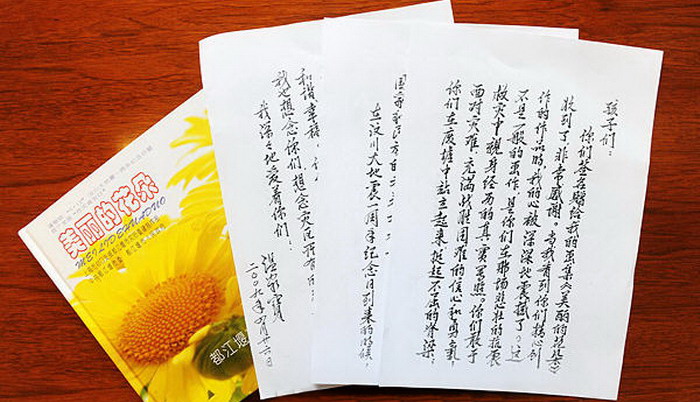 孩子们：
你们签名赠给我的画集《美丽的花朵》
收到了，非常感谢。当我看到你们精心创
作的作品时，我的心被深深地震撼了。这
不是一般的画作，是你们在那场悲壮的抗震
救灾中亲身经历的真实写照。你们敢于
面对灾难，充满战胜困难的信心和勇气，
你们在废墟中站立起来，挺起不屈的脊梁；
在汶川大地震一周年纪念日到来的时候，
和谐幸福
我也想念你们，想念灾区所有的
我深深地爱着你们！
温家宝
二〇〇九年四月廿六日
美丽的花朵
MEILIDEHUADUO
都江堰